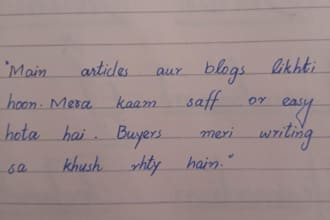 "Main articles aur blogs likhti
hoon. Mera kaam saff or easy
hota hai. Buyers meri writing
sa khush rhty hain."